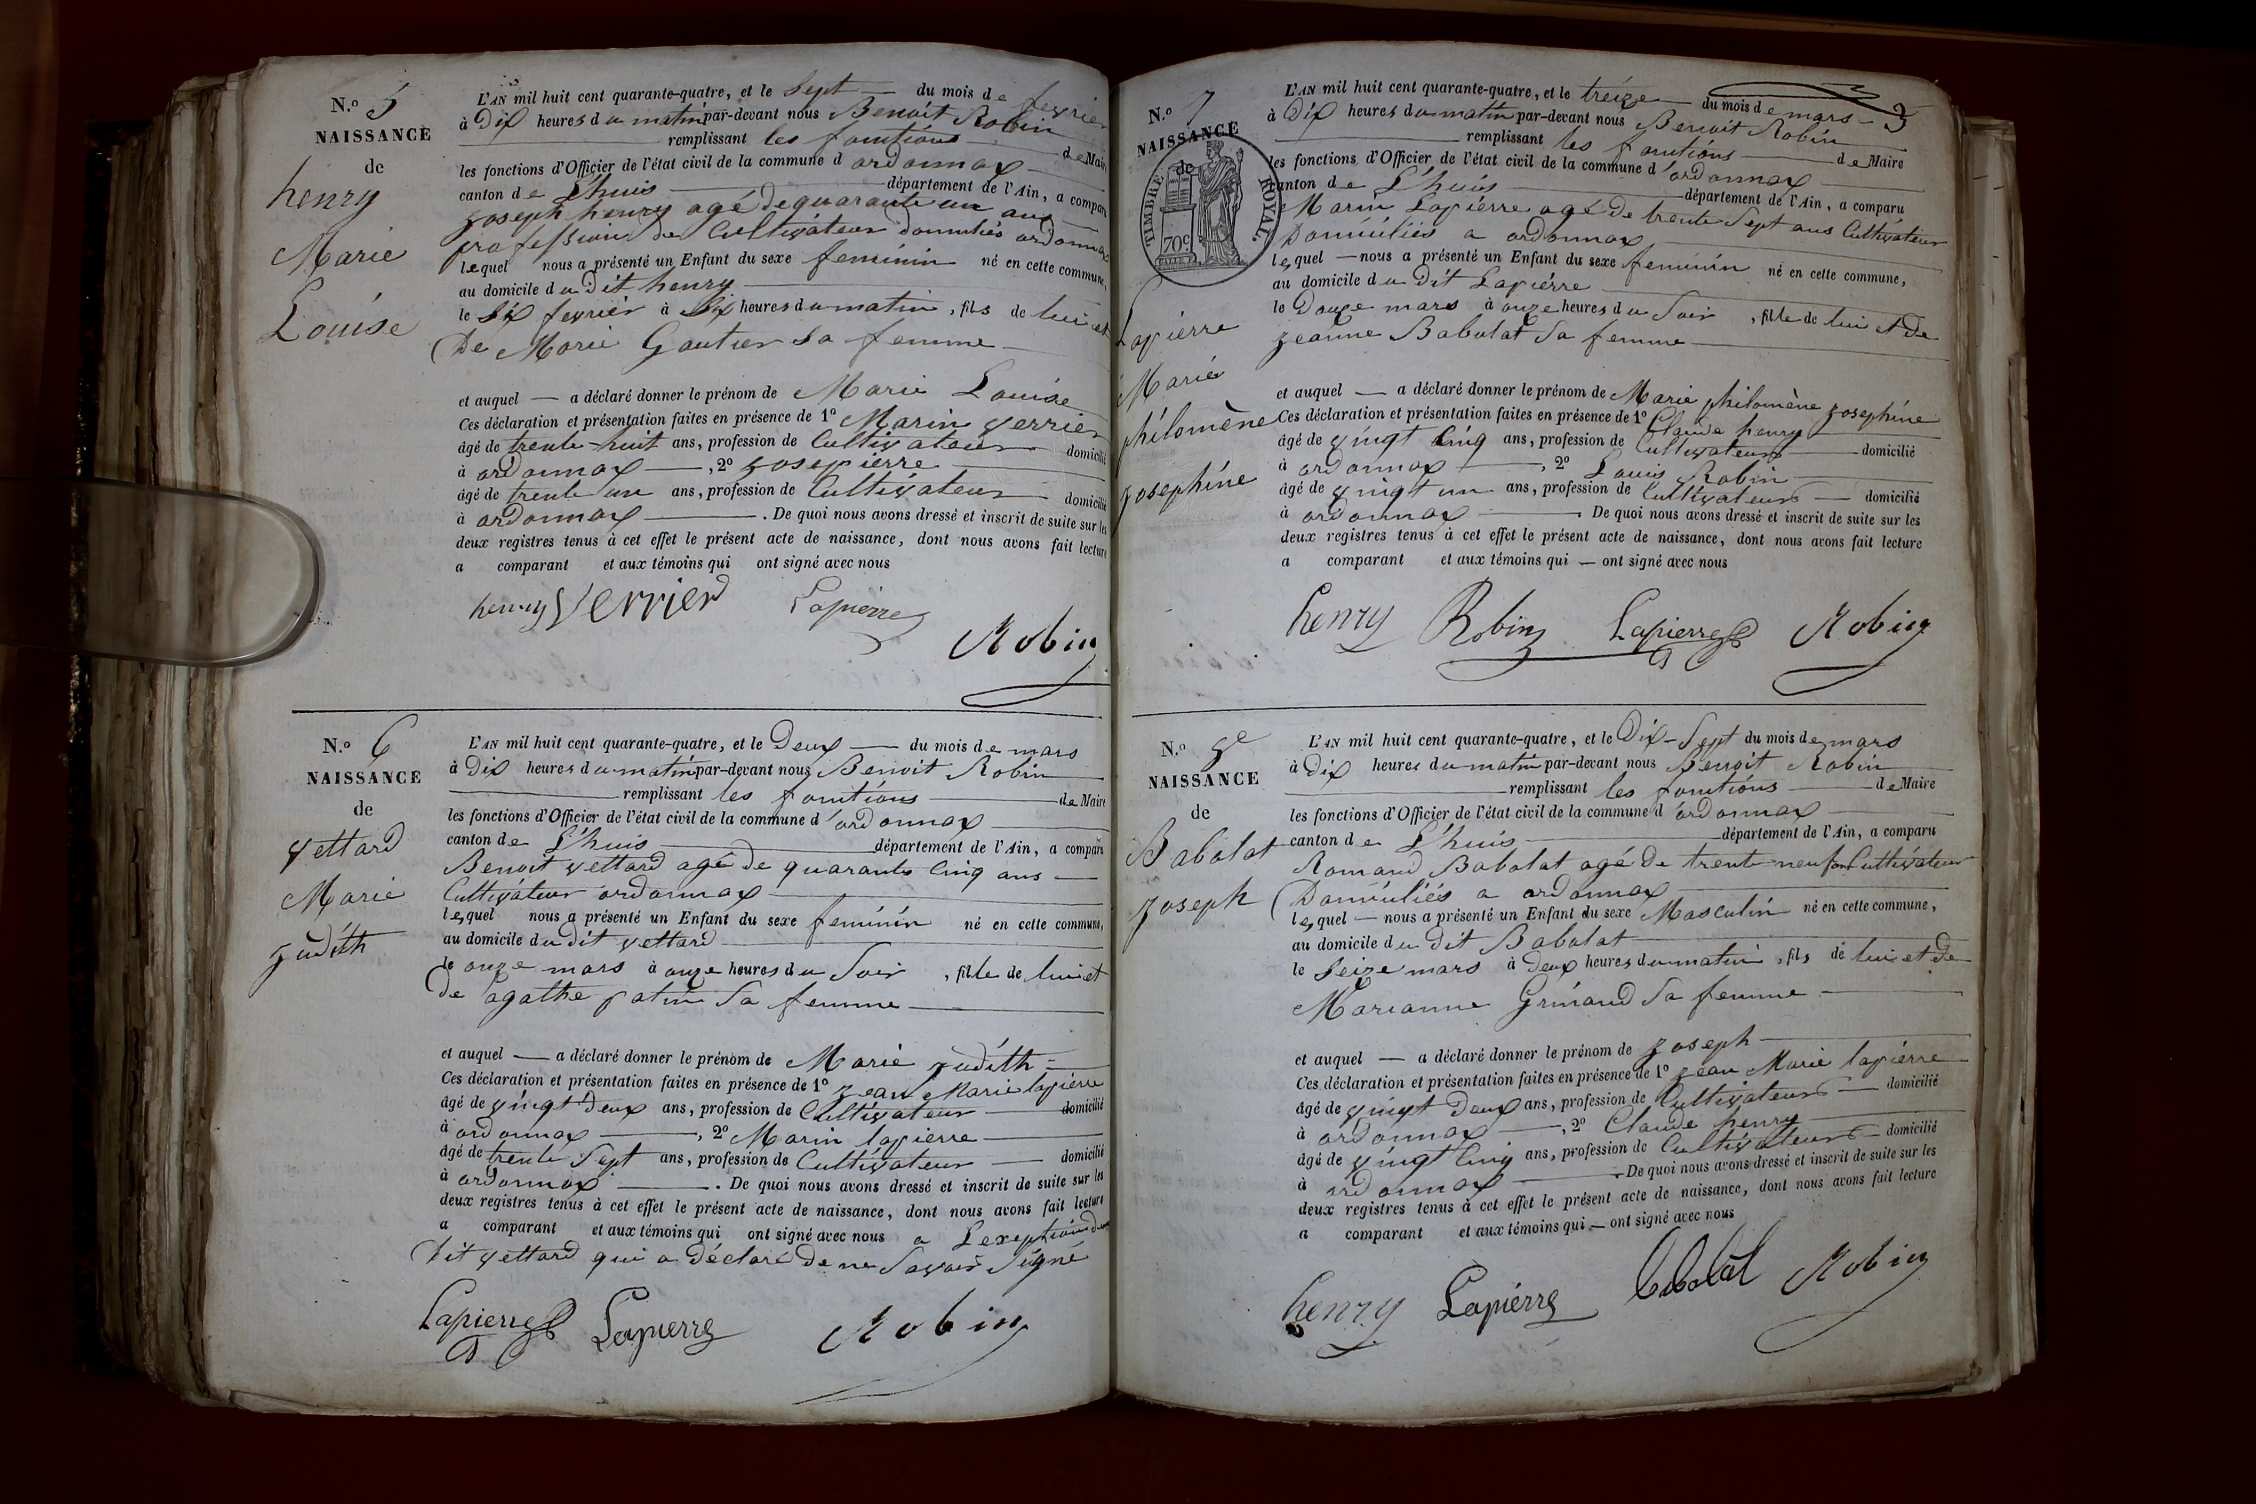 N.º 5
NAISSANCE
de
henry
Marie
Louise
L'AN mil huit cent quarante-quatre, et le Sept du mois de fevrier
à Dix heures du matin par-devant nous Benoit Robin
remplissant les fonctions de Maire
les fonctions d'Officier de l'état civil de la commune d'ordonnax
canton de L'huis département de l'Ain, a comparu
joseph henry agé de quarante un ans
profession de Cultivateur domicilié ordonnax
lequel nous a présenté un Enfant du sexe feminin né en cette commune,
au domicile du Dit henry
le Six fevrier à Six heures du matin, fils de lui et
De Marie Gautier Sa femme
et auquel — a déclaré donner le prénom de Marie Louise
Ces déclaration et présentation faites en présence de 1º Marin verrier
âgé de trente-huit ans, profession de Cultivateur domicilié
à ordonnax, 2º
âgé de trente un ans, profession de Cultivateur domicilié
à ordonnax. De quoi nous avons dressé et inscrit de suite sur les
deux registres tenus à cet effet le présent acte de naissance, dont nous avons fait lecture
a comparant et aux témoins qui ont signé avec nous
henry Verrier Lapierre
Robin
N.º 6
NAISSANCE
de
vettard
Marie
judith
L'AN mil huit cent quarante-quatre, et le Deux du mois de mars
à Dix heures du matin par-devant nous Benoit Robin
remplissant les fonctions de Maire
les fonctions d'Officier de l'état civil de la commune d'ordonnax
canton de L'huis département de l'Ain, a comparu
Benoit vettard agé de quarante Cinq ans
Cultivateur ordonnax
lequel nous a présenté un Enfant du sexe feminin né en cette commune,
au domicile du dit vettard
le onze mars à onze heures du Soir, fille de lui et
de agathe patin Sa femme
et auquel — a déclaré donner le prénom de Marie judith
Ces déclaration et présentation faites en présence de 1º jean Marie lapierre
âgé de vingt Deux ans, profession de Cultivateur domicilié
à ordonnax, 2º Marin lapierre
âgé de trente Sept ans, profession de Cultivateur domicilié
à ordonnax. De quoi nous avons dressé et inscrit de suite sur les
deux registres tenus à cet effet le présent acte de naissance, dont nous avons fait lecture
a comparant et aux témoins qui ont signé avec nous a L'exeption du
Dit vettard qui a déclaré de ne Savoir Signé
Lapierre Lapierre Robin
N.º 7
NAISSANCE
de
TIMBRE ROYAL.
70c
Lapierre
Marie
philomène
josephine
L'AN mil huit cent quarante-quatre, et le treize du mois de mars
à Dix heures du matin par-devant nous Benoit Robin
remplissant les fonctions de Maire
les fonctions d'Officier de l'état civil de la commune d'ordonnax
canton de L'huis département de l'Ain, a comparu
Marin Lapierre agé de trente Sept ans Cultivateur
Domiciliés a ordonnax
lequel — nous a présenté un Enfant du sexe feminin né en cette commune,
au domicile du Dit Lapierre
le Douze mars à onze heures du Soir, fille de lui et De
jeanne Babolat Sa femme
et auquel — a déclaré donner le prénom de Marie philomène josephine
Ces déclaration et présentation faites en présence de 1º Claude henry
âgé de vingt Cinq ans, profession de Cultivateur domicilié
à ordonnax, 2º Louis Robin
âgé de vingt un ans, profession de Cultivateur domicilié
à ordonnax. De quoi nous avons dressé et inscrit de suite sur les
deux registres tenus à cet effet le présent acte de naissance, dont nous avons fait lecture
a comparant et aux témoins qui — ont signé avec nous
henry Robin Lapierre Robin
N.º 8e
NAISSANCE
de
Babolat
joseph
L'AN mil huit cent quarante-quatre, et le Dix-Sept du mois de mars
à Dix heures du matin par-devant nous Benoit Robin
remplissant les fonctions de Maire
les fonctions d'Officier de l'état civil de la commune d'ordonnax
canton de L'huis département de l'Ain, a comparu
Romand Babolat agé de trente neuf ans Cultivateur
Domiciliés a ordonnax
lequel — nous a présenté un Enfant du sexe Masculin né en cette commune,
au domicile du Dit Babolat
le Seize mars à Deux heures du matin, fils de lui et De
Marianne Grinand Sa femme
et auquel — a déclaré donner le prénom de joseph
Ces déclaration et présentation faites en présence de 1º jean Marie lapierre
âgé de vingt Deux ans, profession de Cultivateur domicilié
à ordonnax, 2º Claude henry
âgé de vingt Cinq ans, profession de Cultivateur domicilié
à ordonnax. De quoi nous avons dressé et inscrit de suite sur les
deux registres tenus à cet effet le présent acte de naissance, dont nous avons fait lecture
a comparant et aux témoins qui — ont signé avec nous
henry Lapierre Babolat Robin